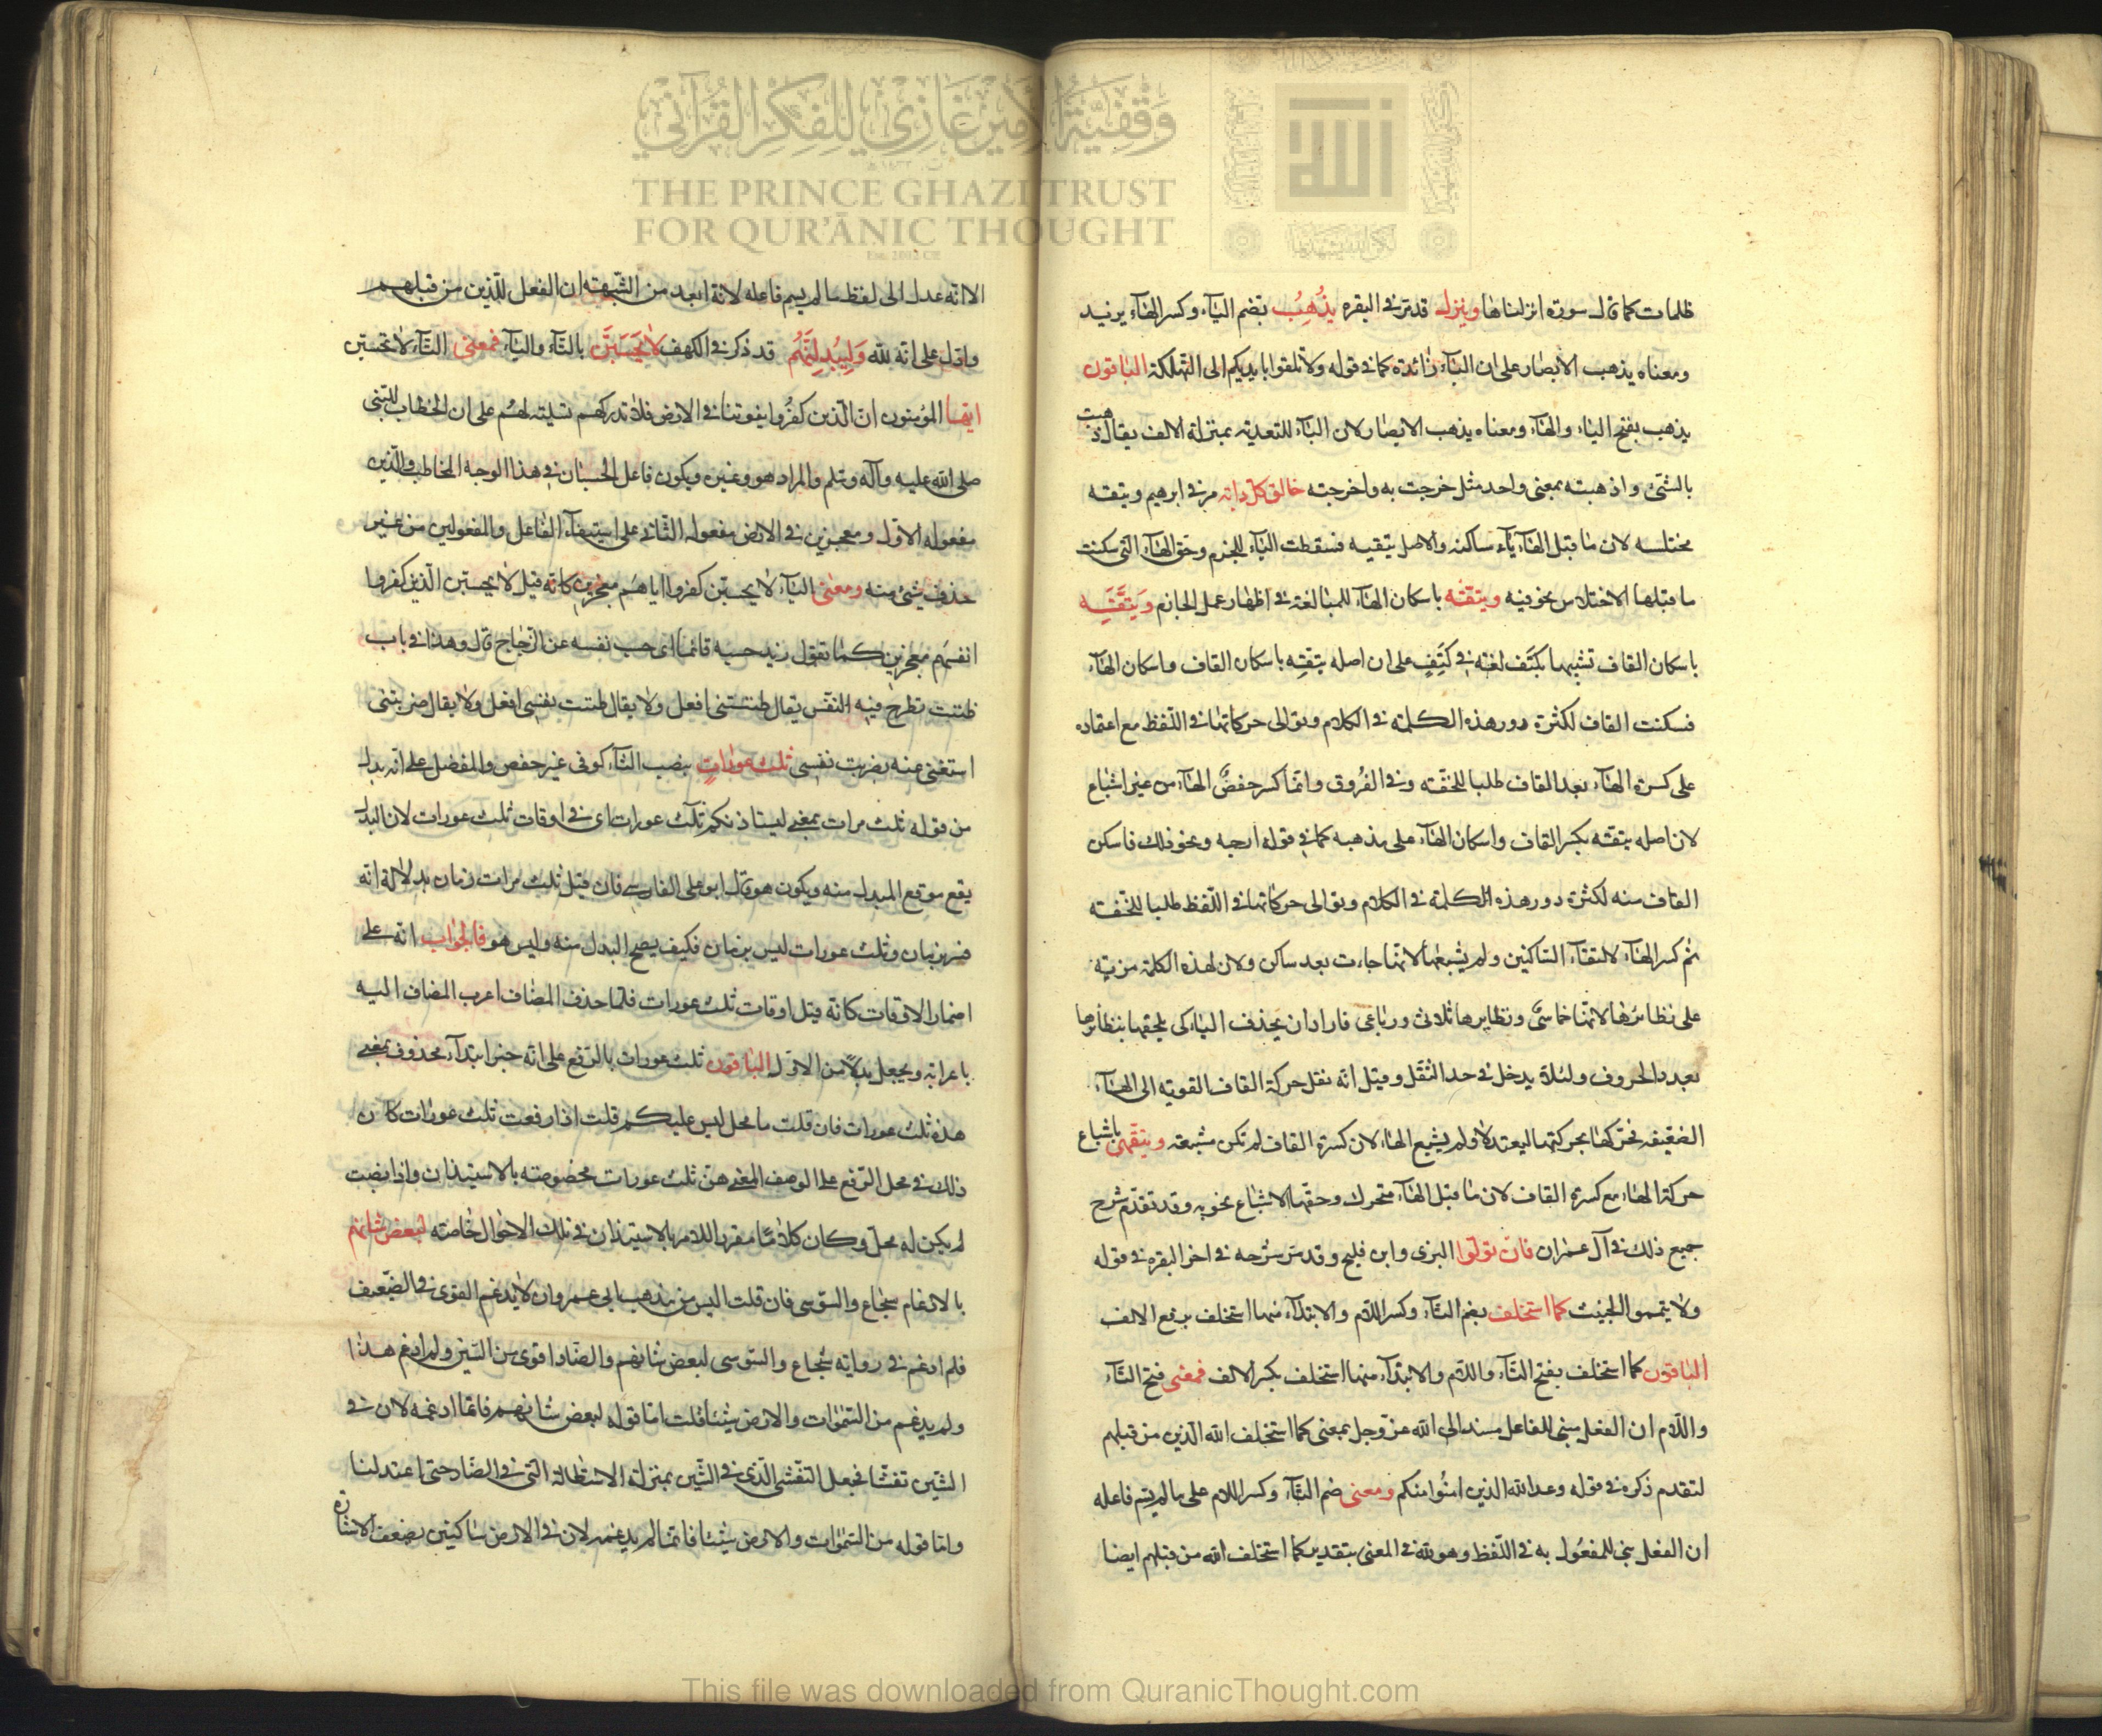 وَقْفِيَّةُ الأَمِيرِ غَازِي لِلْفِكْرِ القُرْآنِي
THE PRINCE GHAZI TRUST
FOR QUR'ĀNIC THOUGHT
Est. 2012 CE
الله
ظلمات كما قال سورة انزلناها وينزل قد مر في البقره يُذْهِبُ بضم اليآء وكسر الهآء يزيد
ومعناه يذهب الابصار على ان البآء زائدة كما في قوله ولا تلقوا بايديكم الى التهلكة الباقون
يذهب بفتح اليآء والهآء ومعناه يذهب الابصار لان البآء للتعدية بمنزلة الالف يقال ذهبت
بالشئ واذهبته بمعنى واحد مثل خرجت به واخرجته خالق كل دابة مر في ابرهيم ويتقه
مختلسه لان ما قبل الهآء يآء ساكنه والاصل يتقيه فسقطت اليآء للجزم وحق الهآء التي سكنت
ما قبلها الاختلاس نحو فيه ويتقه باسكان الهآء للمبالغة في اظهار عمل الجازم وَيَتَّقِه
باسكان القاف تشبيها بكتف لغة في كَتِفٍ على ان اصله يتقه باسكان القاف واسكان الهآء
فسكنت القاف لكثرة دور هذه الكلمة في الكلام وتوالى حركاتها في اللفظ مع اعتماده
على كسرة الهآء بعد القاف طلبا للخفة وفي الفروق وانما كسر حفصٌ الهآء من غير اشباع
لان اصله يتقه بكسر القاف واسكان الهآء على مذهبه كما في قوله ارجه ونحو ذلك فاسكن
القاف منه لكثرة دور هذه الكلمة في الكلام وتوالى حركاتها في اللفظ طلبا للخفة
ثم كسر الهآء لالتقآء الساكنين ولم يشبعها لانها جاءت بعد ساكن ولان لهذه الكلمة مزية
على نظائرها لانها خماسيٌّ ونظايرها ثلاثى ورباعى فاراد ان يحذف اليآء كى يلحقها بنظائرها
بعدد الحروف ولئلا يدخل في حد الثقل وقيل انه نقل حركة القاف القوية الى الهآء
الضعيفه فحركها بحركتها ليعتدلا ولم يشبع الهاء لان كسرة القاف لم تكن مشبعة ويتقهى باشباع
حركة الهاء مع كسرة القاف لان ما قبل الهآء متحرك وحقها الاشباع نحو به وقد تقدم شرح
جميع ذلك في آل عمران فان تولوا البزى وابن فليح وقد مر شرحه في اخر البقره في قوله
ولا تيمموا الخبيث كما استخلف بضم التآء وكسر اللام والابتدآء منها استخلف برفع الالف
الباقون كما استخلف بفتح التآء واللام والابتدآء منها استخلف بكسر الالف فمعنى فتح التآء
واللام ان الفعل مبنى للفاعل مسند الى الله عز وجل بمعنى كما استخلف الله الذين من قبلهم
لتقدم ذكره في قوله وعد الله الذين امنوا منكم ومعنى ضم التآء وكسر اللام على ما لم يسم فاعله
ان الفعل بني للمفعول به في اللفظ وهو لله في المعنى بتقدير كما استخلف الله من قبلهم ايضا
الا انه عدل الى لفظ ما لم يسم فاعله لانه ابعد من الشبهة ان الفعل للذين من قبلهم
وادل على انه لله وَلِيُبْدِلَنَّهُم قد ذكر في الكهف لا يَحْسَبَنَّ بالتآء واليآء فمعنى التآء لا تحسبن
ايها المؤمنون ان الذين كفروا يفوتنا في الارض فلا تدركهم تسلية لهم على ان الخطاب للنبى
صلى الله عليه وآله وسلم والمراد هو وغيره ويكون فاعل الحسبان في هذا الوجه المخاطب والذين
مفعوله الاول ومعجزين في الارض مفعوله الثانى على استيفآء الفاعل والمفعولين من غير
حذف شئ منه ومعنى اليآء لا يحسبن كفروا اياهم معجزين كانه قيل لا يحسبن الذين كفروا
انفسهم معجزين كما تقول زيد حسبه قائما اى حسب نفسه عن الزجاج قال وهذا في باب
ظننت تطرح فيه النفس يقال ظننتني افعل ولا يقال ظننت نفسى افعل ولا يقال ضربتنى
استغنى عنه بضربت نفسى ثلث عورات بنصب الثآء كوفى غير حفص والمفضل على انه بدل
من قوله ثلث مرات بمعنى ليستاذنكم ثلث عورات اى في اوقات ثلث عورات لان البدل
يقع موقع المبدل منه ويكون هو قال ابو على الفارسي فان قيل ثلث مرات زمان بدلالة انه
فسر بزمان وثلث عورات ليس بزمان فكيف يصح البدل منه وليس هو فالجواب انه على
اضمار الاوقات كانه قيل اوقات ثلث عورات فلما حذف المضاف اعرب المضاف اليه
باعرابه ويجعل بدلا من الاول الباقون ثلث عورات بالرفع على انه خبر ابتدآء محذوف بمعنى
هذه ثلث عورات فان قلت ما محل ليس عليكم قلت اذا رفعت ثلث عورات كان
ذلك في محل الرفع على الوصف المعنى هن ثلث عورات مخصوصة بالاستيذان واذا نصبت
لم يكن له محل وكان كلامًا مقررا للامر بالاستيذان في تلك الاحوال خاصة لبعض شانهم
بالادغام شجاع والسوسى فان قلت اليس من مذهب ابى عمرو ان لا يدغم القوى في الضعيف
فلم ادغم في رواية شجاع والسوسى لبعض شانهم والضاد اقوى من الشين ولم ادغم هذا
ولم يدغم من السموات والارض شيئا قلت اما قوله لبعض شانهم فانما ادغمه لان في
الشين تفشيا فجعل التفشى الذى في الشين بمنزلة الاستطالة التي في الضاد حتى اعتدلنا
واما قوله من السموات والارض شيئا فانما لم يدغمه لان في الارض ساكنين بضعف الاشارة
This file was downloaded from QuranicThought.com